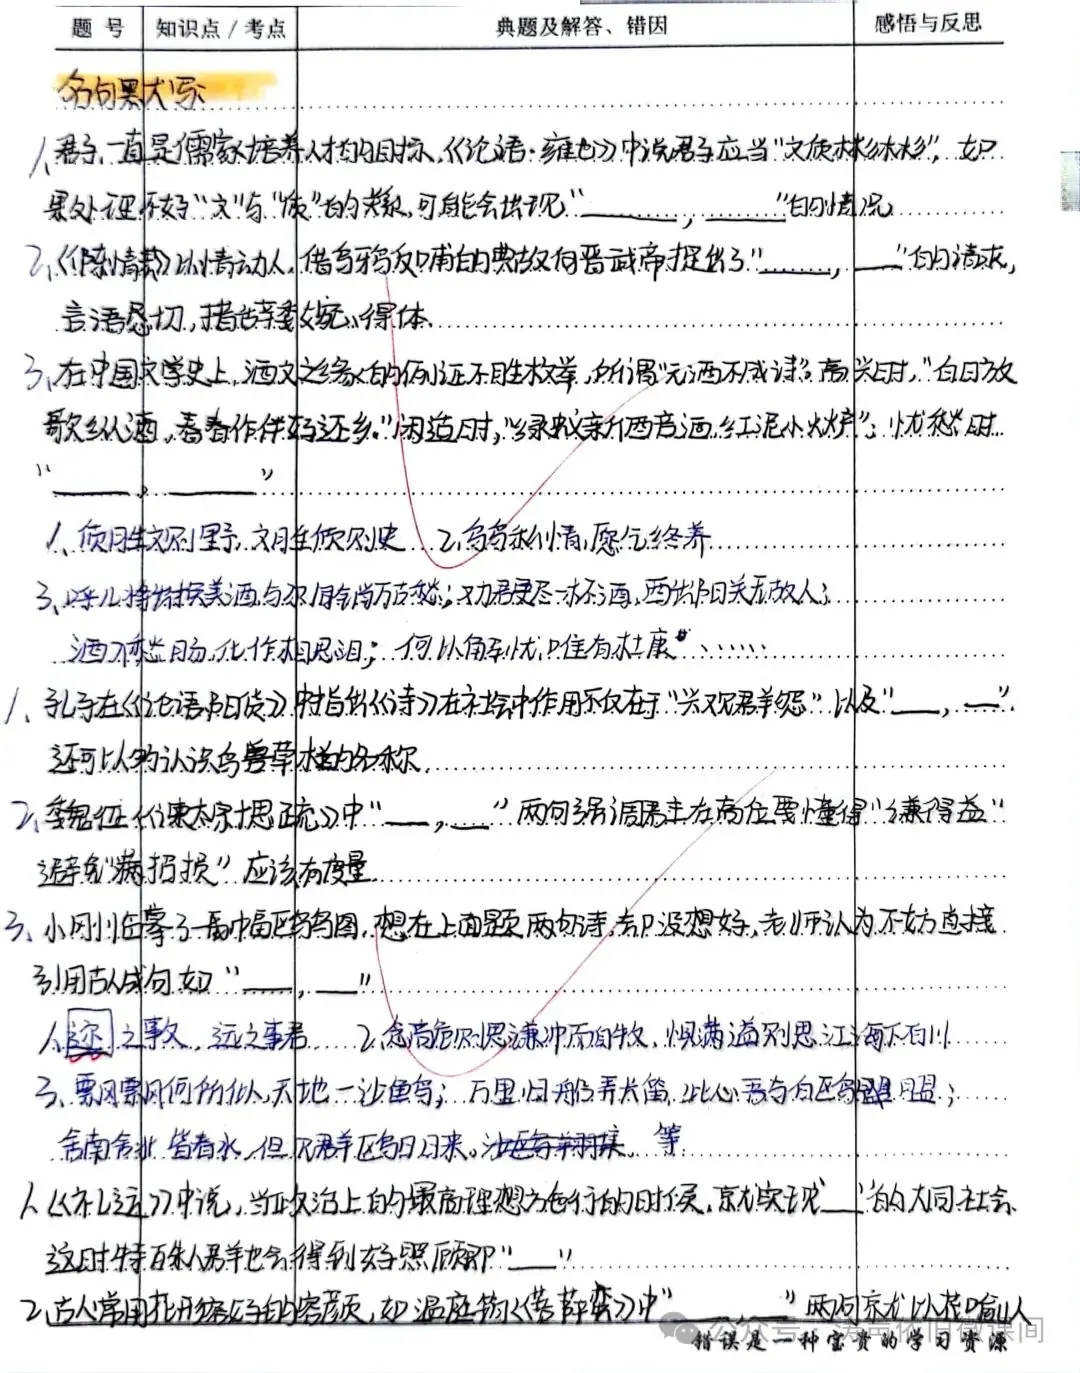 题 号 知识点/考点 典题及解答、错因 感悟与反思
名句默写
1、君子一直是儒家培养人才的目标、《论语·雍也》中说君子应当“文质彬彬”，如
果处理不好“文”与“质”的关系,可能会出现“______，______”的情况
2、《陈情表》以情动人，借乌鸦反哺的典故向晋武帝提出了“______，____”的请求，
言语恳切，措辞委婉、得体.
3、在中国文学史上，酒文之缘的例证不胜枚举，所谓“无酒不成诗”。高兴时，“白日放
歌须纵酒，青春作伴好还乡。”闲适时，“绿蚁新醅酒,红泥小火炉”；忧愁时
“______，______”
1、质胜文则野，文胜质则史 2、乌鸟私情，愿乞终养
3、呼儿将出换美酒,与尔同销万古愁；劝君更尽一杯酒，西出阳关无故人；
酒入愁肠，化作相思泪；何以解忧，唯有杜康”......
1、孔子在《论语·阳货》中指出《诗》在社会中作用不仅在于“兴观群怨”以及“____，___”.
还可以多认识鸟兽草木的名称.
2、魏征《谏太宗十思疏》中“___，___”两句强调君主在高位要懂得“谦得益”
避免“满招损”应该有度量.
3、小刚临摹了一幅中国鸥鸟图，想在上面题两句诗，却没想好，老师认为不妨直接
引用古人成句,如“____，___”
1、迩之事父，远之事君 2、念高危则思谦冲而自牧，惧满溢则思江海下百川
3、飘飘何所似，天地一沙鸥；万里归船弄长笛，此心吾与白鸥盟；
舍南舍北皆春水，但见群鸥日日来。等
1、《礼运》中说，当政治上的最高理想方施行的时候，就实现___”的大同社会.
这时特殊人群也会得到好照顾即“___”
2、古人常用花形容好的容颜，如温庭筠《菩萨蛮》中“____，____”两句就以花喻人
公众号·涛声依旧微课间
错误是一种宝贵的学习资源